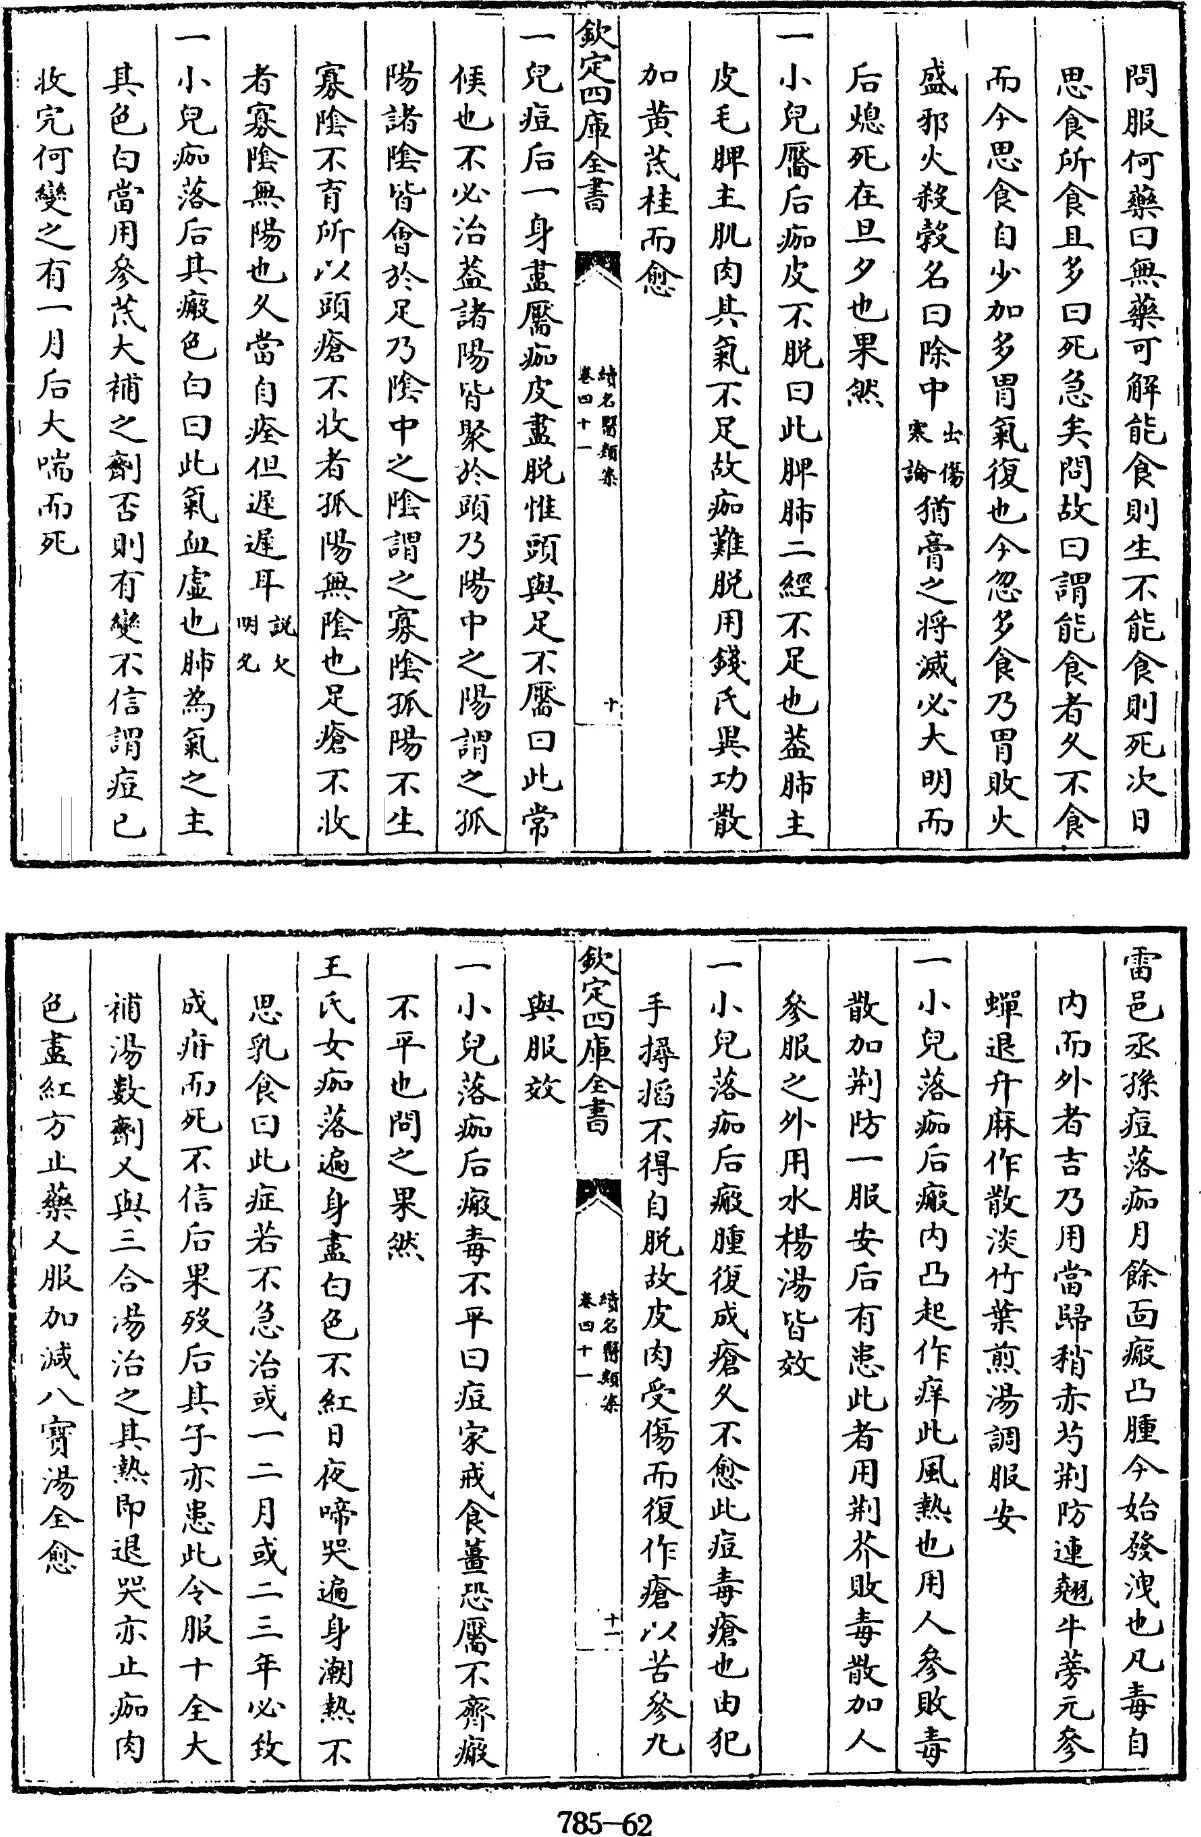 問服何藥曰無藥可解能食則生不能食則死次日
思食所食且多曰死急矣問故曰謂能食者久不食
而今思食自少加多胃氣復也今忽多食乃胃敗火
盛邪火殺穀名曰除中出傷寒論猶膏之將滅必大明而
后熄死在旦夕也果然
一小兒靨后痂皮不脫曰此脾肺二經不足也蓋肺主
皮毛脾主肌肉其氣不足故痂難脫用錢氏異功散
加黄芪桂而愈
欽定四庫全書
續名醫類案
卷四十一
十
一兒痘后一身盡靨痂皮盡脫惟頭與足不靨曰此常
候也不必治蓋諸陽皆聚於頭乃陽中之陽謂之孤
陽諸陰皆會於足乃陰中之陰謂之寡陰孤陽不生
寡陰不育所以頭瘡不收者孤陽無陰也足瘡不收
者寡陰無陽也久當自痊但遲遲耳説欠明允
一小兒痂落后其瘢色白曰此氣血虛也肺為氣之主
其色白當用參芪大補之劑否則有變不信謂痘已
收完何變之有一月后大喘而死
雷邑丞孫痘落痂月餘面瘢凸腫今始發洩也凡毒自
内而外者吉乃用當歸稍赤芍荆防連翹牛蒡元參
蟬退升麻作散淡竹葉煎湯調服安
一小兒落痂后瘢内凸起作痒此風熱也用人參敗毒
散加荆防一服安后有患此者用荆芥敗毒散加人
參服之外用水楊湯皆效
一小兒落痂后瘢腫復成瘡久不愈此痘毒瘡也由犯
手撏搯不得自脫故皮肉受傷而復作瘡以苦參丸
欽定四庫全書
續名醫類案
卷四十一
十一
與服效
一小兒落痂后瘢毒不平曰痘家戒食薑恐靨不齊瘢
不平也問之果然
王氏女痂落遍身盡白色不紅日夜啼哭遍身潮熱不
思乳食曰此症若不急治或一二月或二三年必致
成疳而死不信后果歿后其子亦患此令服十全大
補湯數劑又與三合湯治之其熱即退哭亦止痂肉
色盡紅方止藥又服加減八寶湯全愈
785-62